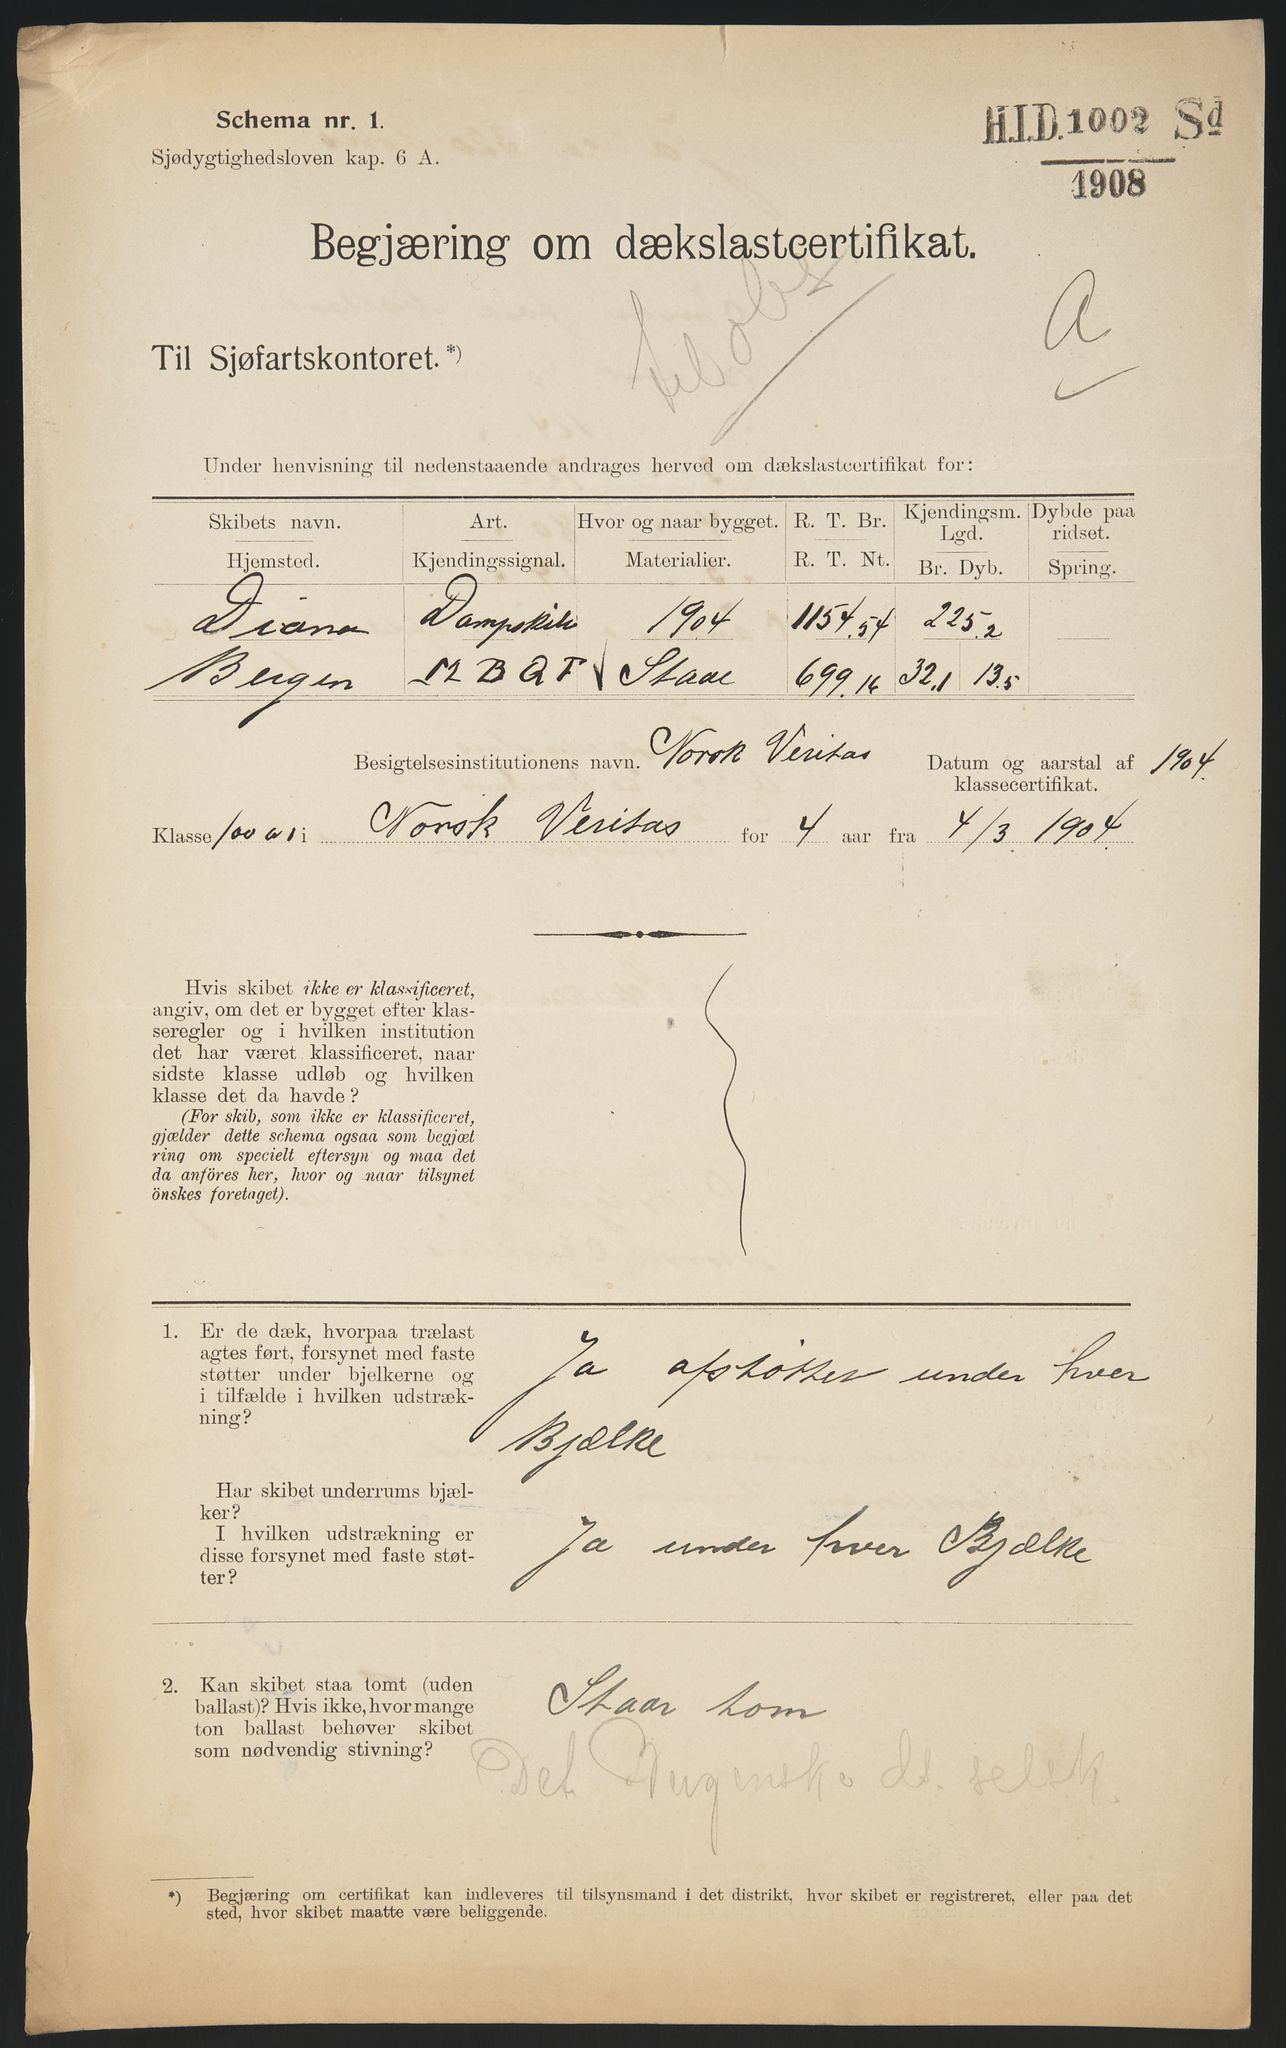 Schema nr. 1.
Sjødygtighedsloven kap. 6 A.
H.I.D. 1002 Sd
1908
Begjæring om dækslastcertifikat.
A
Til Sjøfartskontoret.*)
Under henvisning til nedenstaaende andrages herved om dækslastcertifikat for:
Skibets navn. Art. Hvor og naar bygget. R. T. Br. Kjendingsm. Lgd. Dybde paa ridset.
Hjemsted. Kjendingssignal. Materialier. R. T. Nt. Br. Dyb. Spring.
Diana Dampskib 1904 1154.54 225.2
Bergen M B Q F Staal 699.16 32.1 13.5
Besigtelsesinstitutionens navn. Norsk Veritas Datum og aarstal af 1904.
klassecertifikat.
Klasse 100 a 1 i Norsk Veritas for 4 aar fra 4/3 1904.
Hvis skibet ikke er klassificeret,
angiv, om det er bygget efter klas-
seregler og i hvilken institution
det har været klassificeret, naar
sidste klasse udløb og hvilken
klasse det da havde?
(For skib, som ikke er klassificeret,
gjælder dette schema ogsaa som begjæt
ring om specielt eftersyn og maa det
da anføres her, hvor og naar tilsynet
önskes foretaget).
1. Er de dæk, hvorpaa trælast
agtes ført, forsynet med faste
støtter under bjelkerne og
i tilfælde i hvilken udstræk-
ning?
Ja afstøttet under hver
Bjælke
Har skibet underrums bjæl-
ker?
I hvilken udstrækning er
disse forsynet med faste støt-
ter?
Ja under hver Bjælke
2. Kan skibet staa tomt (uden
ballast)? Hvis ikke, hvor mange
ton ballast behøver skibet
som nødvendig stivning?
Staar tom
Det Bergenske ds. selsk.
*) Begjæring om certifikat kan indleveres til tilsynsmand i det distrikt, hvor skibet er registreret, eller paa det
sted, hvor skibet maatte være beliggende.